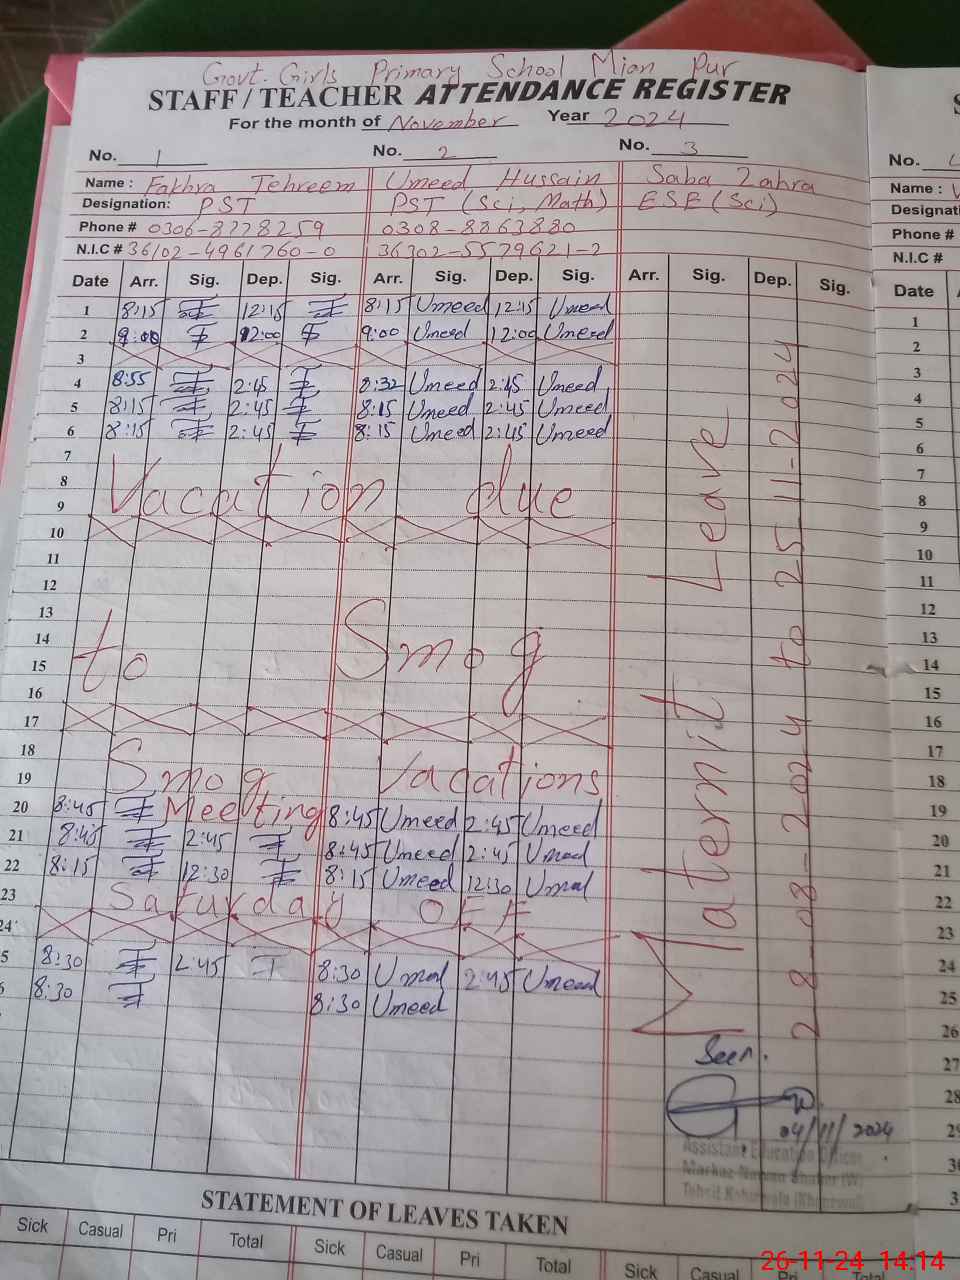 Govt. Girls Primary School Mian Pur
STAFF / TEACHER ATTENDANCE REGISTER
For the month of November Year 2024
No. 1 No. 2 No. 3 No.
Name : Fakhra Tehreem Umeed Hussain Saba Zahra Name :
Designation: PST PST (Sci, Math) ESE (Sci) Designati
Phone # 0306-8778259 0308-8863880 Phone #
N.I.C # 36102-4961760-0 36302-5579621-2 N.I.C #
Date Arr. Sig. Dep. Sig. Arr. Sig. Dep. Sig. Arr. Sig. Dep. Sig. Date
1 8:15 12:15 8:15 Umeed 12:15 Umeed 1
2 9:00 12:00 9:00 Umeed 12:00 Umeed 2
3 3
4 8:55 2:45 8:32 Umeed 2:45 Umeed 4
5 8:15 2:45 8:15 Umeed 2:45 Umeed 5
6 8:15 2:45 8:15 Umeed 2:45 Umeed 6
7 7
8 Vacation due 8
9 9
10 10
11 11
12 12
13 13
14 to Smog 14
15 15
16 16
17 17
18 18
19 Smog Vacations 19
20 8:45 Meeting 8:45 Umeed 2:45 Umeed 20
21 8:45 2:45 8:45 Umeed 2:45 Umeed 21
22 8:15 12:30 8:15 Umeed 12:30 Umeed 22
23 Saturday OFF 23
24 24
5 8:30 2:45 8:30 Umeed 2:45 Umeed 25
8:30 8:30 Umeed 26
27
28
29
30
3
Maternit Leave
28-08-2024 to 25-11-2024
Seen.
04/11/2024
Assistant Education Officer
Markaz
STATEMENT OF LEAVES TAKEN
Sick Casual Pri Total Sick Casual Pri Total Sick Casual Pri Total
26-11-24 14:14